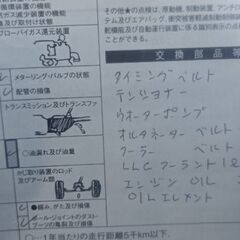 循環装置の損傷
ガス減少装置
び取付け状態
ブローバイガス還元装置
メターリング・バルブの状態
配管の損傷
トランスミッション及びトランスファ
○油漏れ及び油量
かじ取り装置のロッド
及びアーム類
●緩み、がた及び損傷
ボール・ジョイントのダスト・
ブーツの亀裂及び損傷
○…1年当たり走行距離5千km以下、
その他★の点検は、原動機、制動装置、アンチロ
テム及びエアバッグ、衝突被害軽減制動制御
舵機能及び自動運行装置に係る識別表示の点検
交換部品等
タイミングベルト
テンショナー
ウオーターポンプ
オルタネーターベルト
クーラーベルト
LLCクーラント
エンジンOIL
OILエレメント